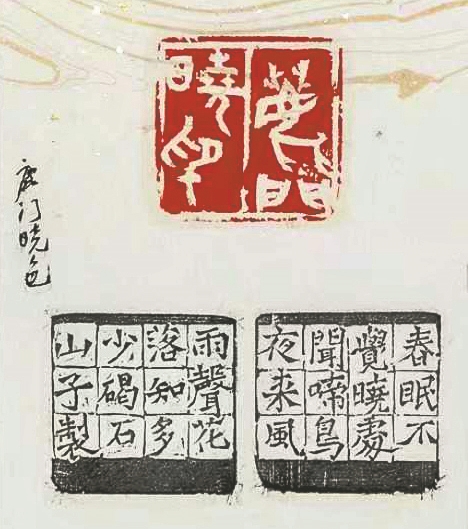 鹿門
曉色
鹿门晓色
春眠不
覺曉處
聞啼鳥
夜来風
雨聲花
落知多
少碣石
山子製